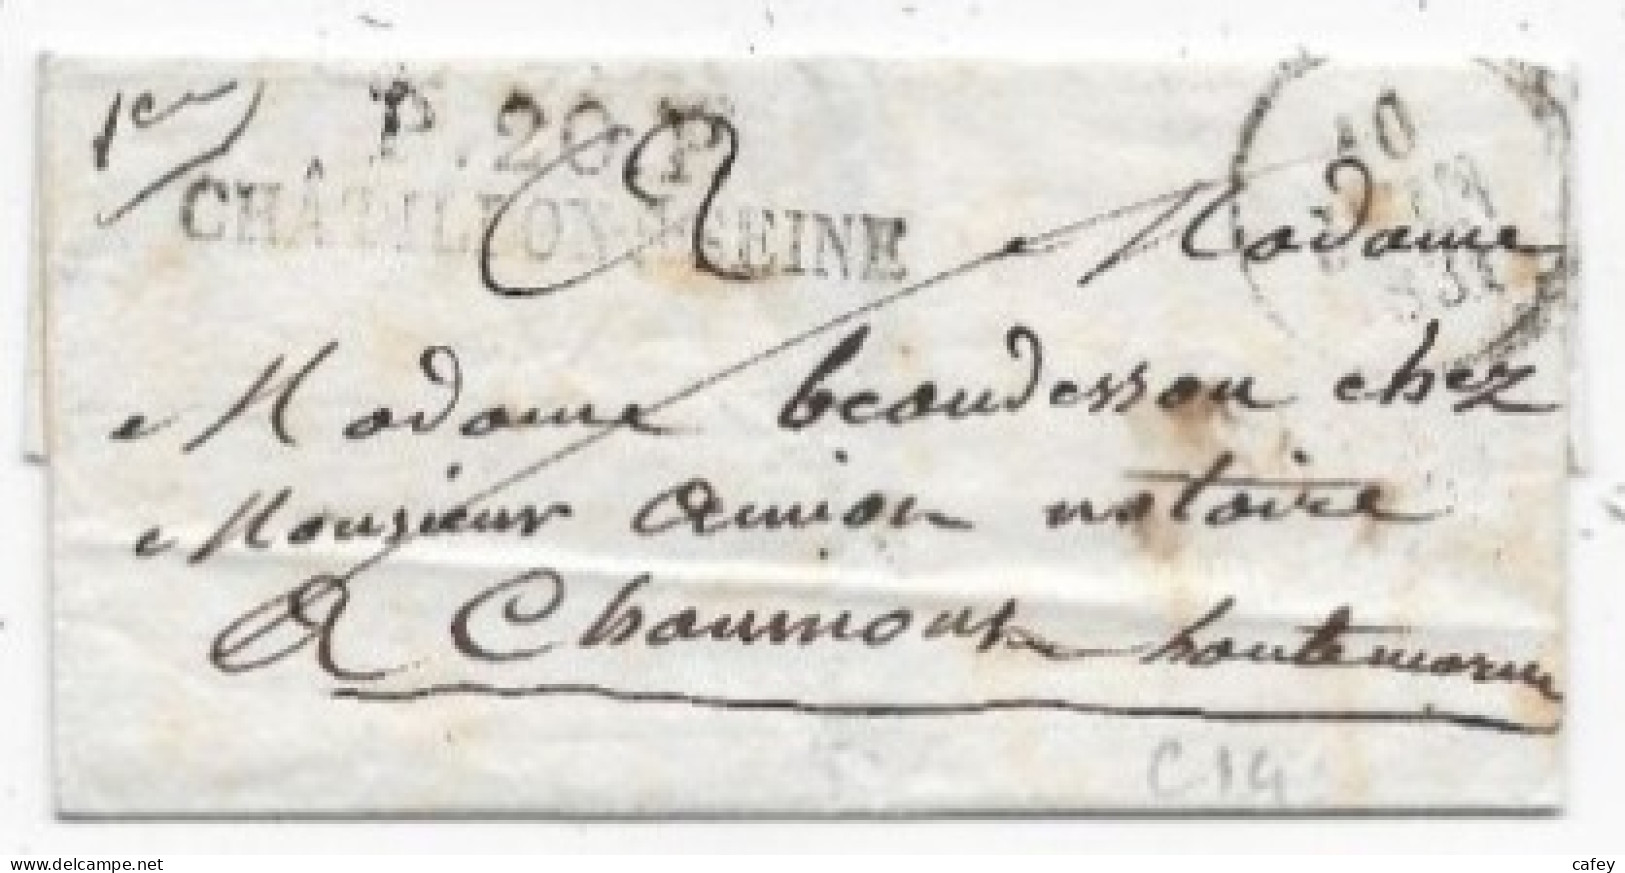 P. 20 P.
CHÂTILLON-S-SEINE
10
Madame
Madame beaudesson chez
Monsieur notaire
A Chaumont hautemarne
C 14
www.delcampe.net
cafey